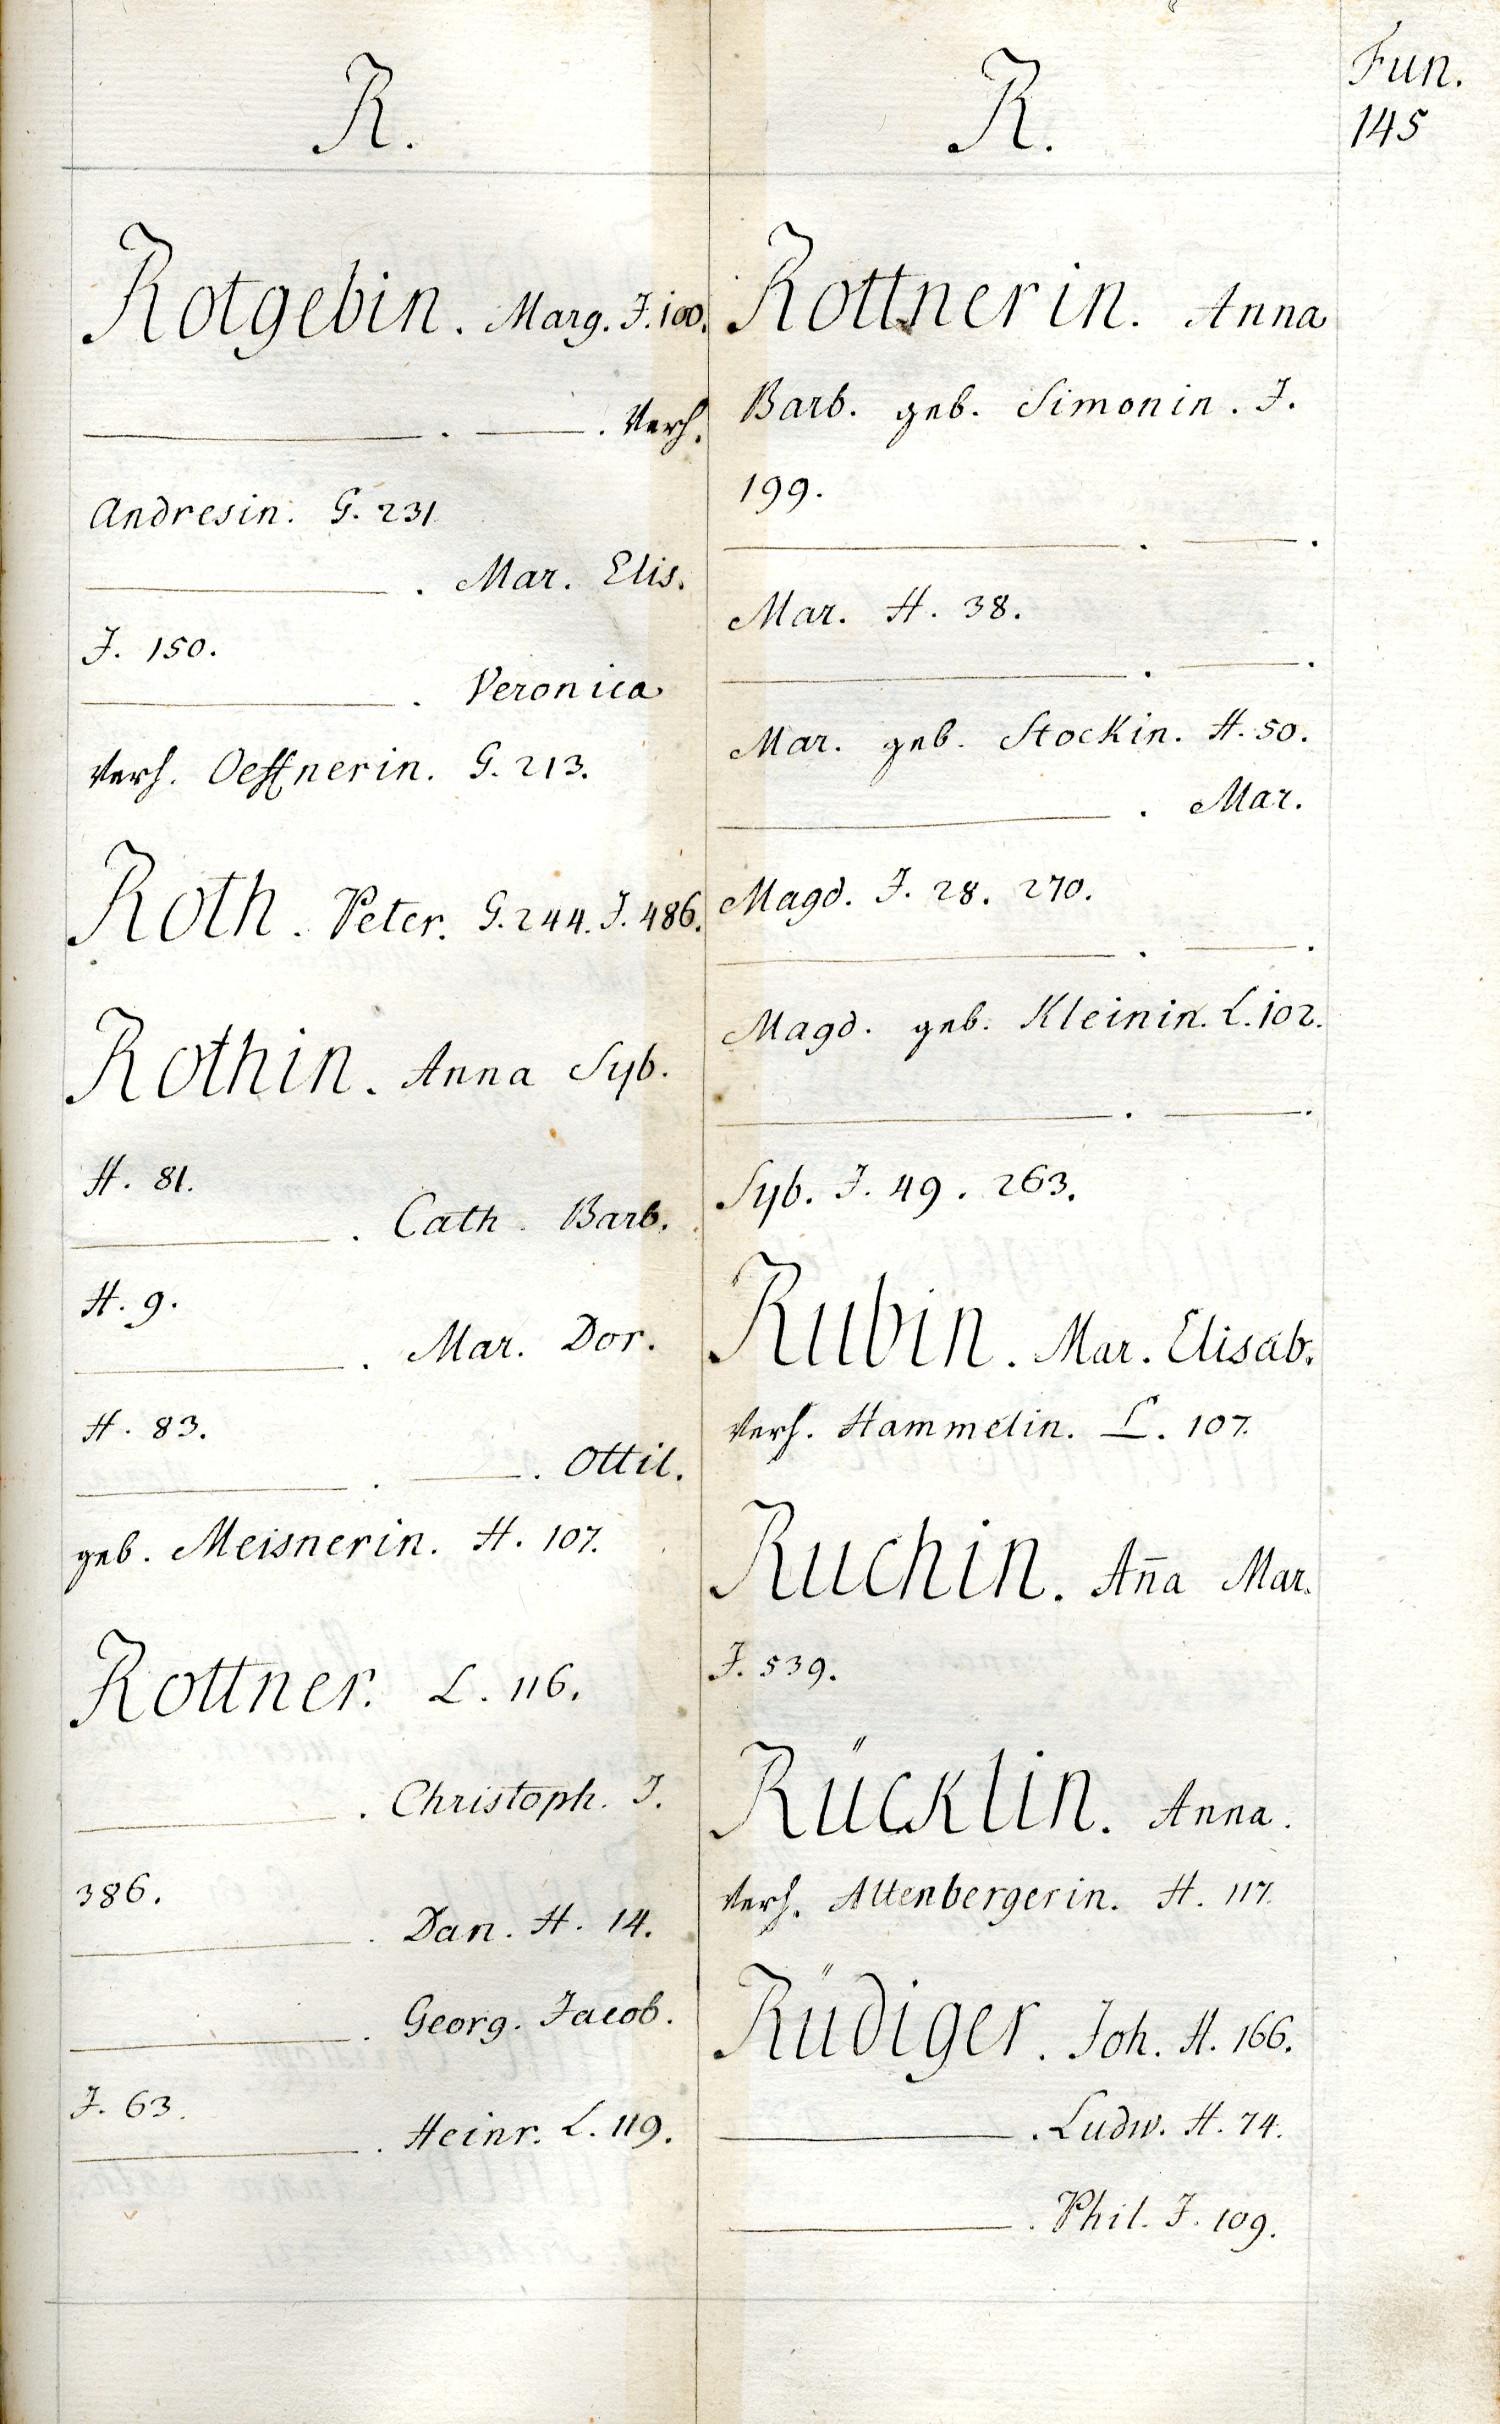 R.
Rotgebin. Marg. J. 100.
———. ———. Verh.
Andresin. G. 231
———. Mar. Elis.
J. 150.
———. Veronica
Verh. Oeffnerin. G. 213.
Roth. Peter. G. 244. J. 486.
Rothin. Anna Syb.
H. 81.
———. Cath. Barb.
H. 9.
———. Mar. Dor.
H. 83.
———. ———. Ottil.
geb. Meisnerin. H. 107.
Rottner. L. 116.
———. Christoph. J.
386.
———. Dan. H. 14.
———. Georg. Jacob.
J. 63.
———. Heinr. L. 119.
R.
Rottnerin. Anna
Barb. geb. Simonin. J.
199.
———. ———.
Mar. H. 38.
———. ———.
Mar. geb. Stockin. H. 50.
———. Mar.
Magd. J. 28. 270.
———. ———.
Magd. geb. Kleinin. L. 102.
———. ———.
Syb. J. 49. 263.
Rubin. Mar. Elisab.
Verh. Hammelin. L. 107.
Ruchin. Aña Mar.
J. 539.
Rücklin. Anna.
Verh. Altenbergerin. H. 117.
Rüdiger. Joh. H. 166.
———. Ludw. H. 74.
———. Phil. J. 109.
Fun.
145